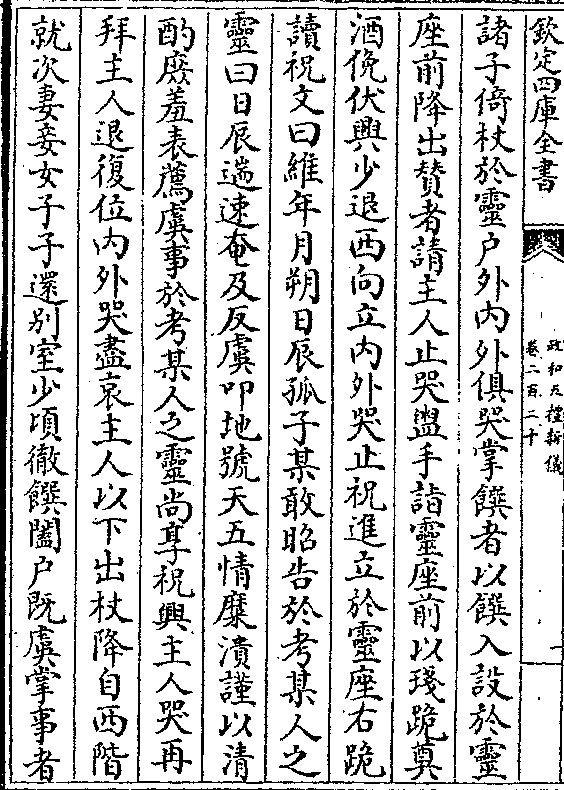 欽定四庫全書
政和五禮新儀
卷二百二十
一
諸子倚杖於靈户外内外俱哭掌饌者以饌入設於靈
座前降出贊者請主人止哭盥手詣靈座前以琖跪奠
酒俛伏興少退西向立内外哭止祝進立於靈座右跪
讀祝文曰維年月朔日辰孤子某敢昭告於考某人之
靈曰日辰遄速奄及反虞叩地號天五情糜潰謹以清
酌庶羞表薦虞事於考某人之靈尚享祝興主人哭再
拜主人退復位内外哭盡哀主人以下出杖降自西階
就次妻妾女子子還别室少頃徹饌闔户既虞掌事者